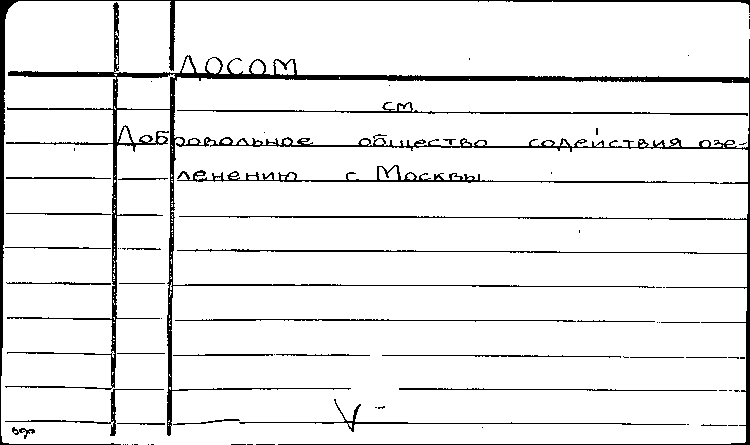 ДОСОМ
см.
Добровольное общество содействия озе-
ленению г. Москвы